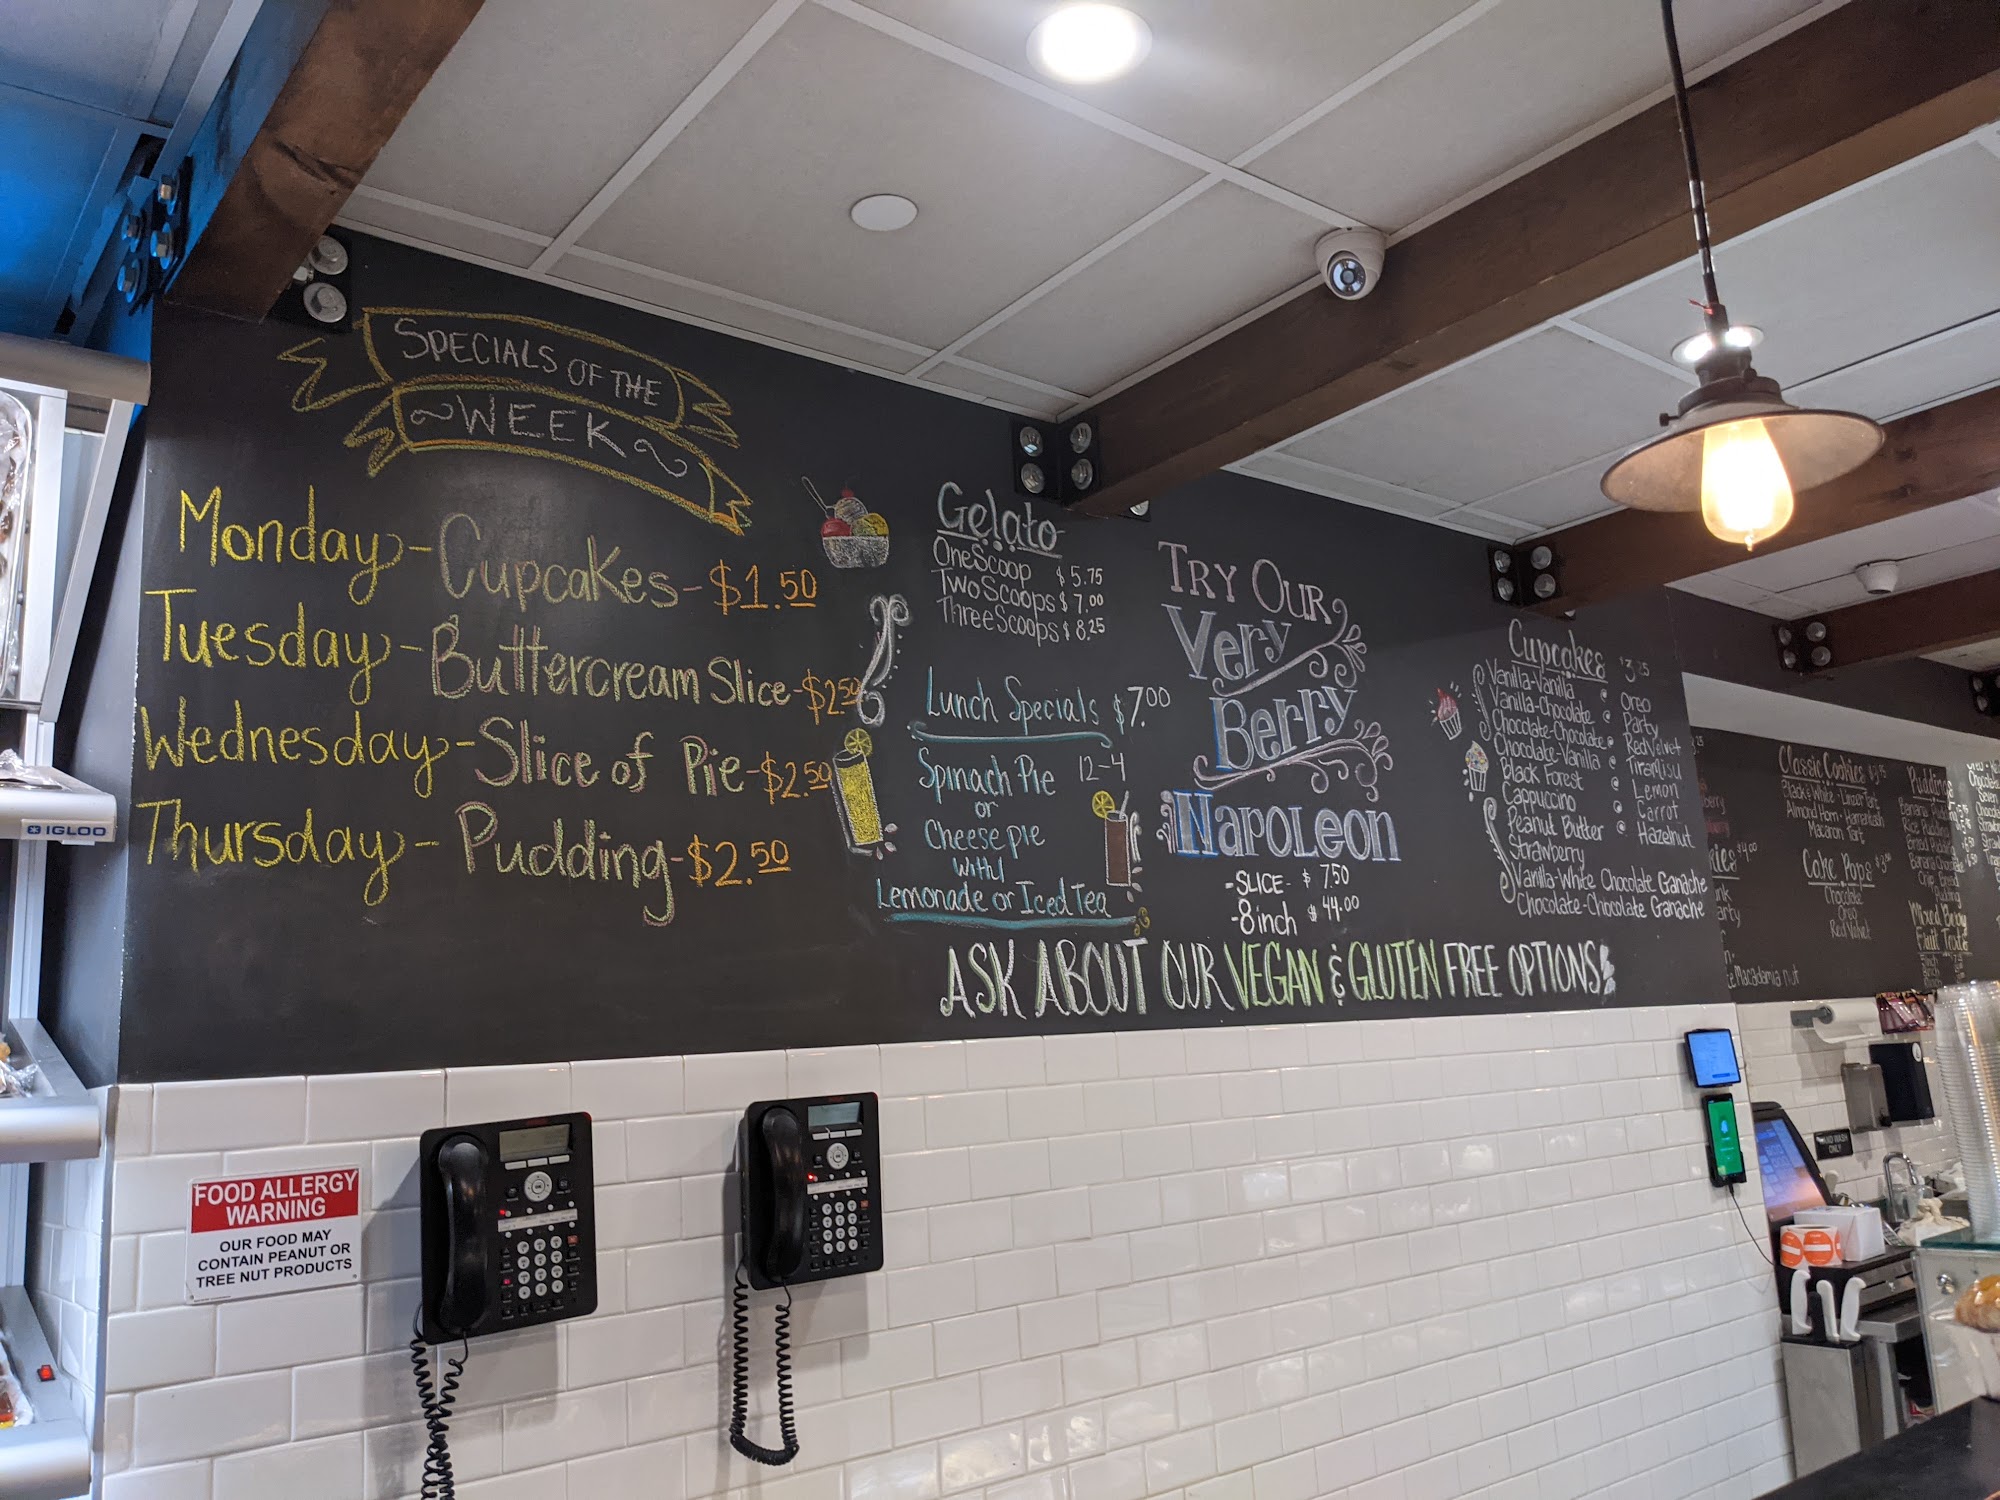 SPECIALS OF THE
WEEK
Monday - Cupcakes - $1.50
Tuesday - Buttercream Slice - $2.50
Wednesday - Slice of Pie - $2.50
Thursday - Pudding - $2.50
Gelato
One Scoop $5.75
Two Scoops $7.00
Three Scoops $8.25
Lunch Specials $7.00
Spinach Pie 12-4
or
Cheese pie
with
Lemonade or Iced Tea
TRY OUR
Very
Berry
Napoleon
-SLICE- $7.50
-8 inch $44.00
ASK ABOUT OUR VEGAN & GLUTEN FREE OPTIONS
Cupcakes $3.25
Vanilla-Vanilla
Vanilla-Chocolate
Chocolate-Chocolate
Chocolate-Vanilla
Black Forest
Cappuccino
Peanut Butter
Strawberry
Vanilla-White Chocolate Ganache
Chocolate-Chocolate Ganache
Oreo
Party
Red Velvet
Tiramisu
Lemon
Carrot
Hazelnut
Classic Cookies
Black & White
Almond Horn
Macaron Tart
Cake Pops
Chocolate
Oreo
Red Velvet
$4.00
Macadamia nut
Pudding
Mixed Berry
Fruit
IGLOO
FOOD ALLERGY
WARNING
OUR FOOD MAY
CONTAIN PEANUT OR
TREE NUT PRODUCTS
HAND WASH
ONLY